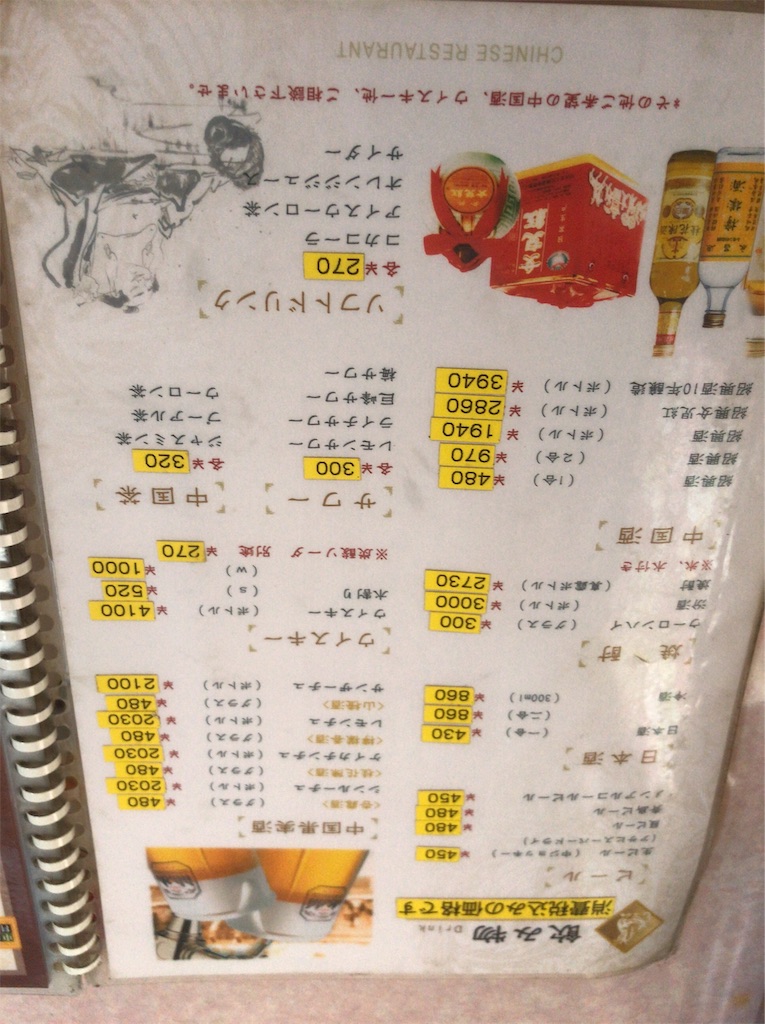 飲み物 Drink
消費税込みの価格です
ビール
生ビール (中ジョッキー) ¥450
(アサヒスーパードライ)
瓶ビール ¥480
青島ビール ¥480
ノンアルコールビール ¥450
日本酒
日本酒 (一合) ¥430
(二合) ¥860
冷酒 (300ml) ¥860
焼酎
ウーロンハイ (グラス) ¥300
汾酒 (ボトル) ¥3000
焼酎 (真露ボトル) ¥2730
※氷、水付き
中国酒
紹興酒 (1合) ¥480
紹興酒 (2合) ¥970
紹興酒 (ボトル) ¥1940
紹興女児紅 (ボトル) ¥2860
紹興酒10年醸造 (ボトル) ¥3940
中国果実酒
〈杏露酒〉 (グラス) ¥480
シンルーチュ (ボトル) ¥2030
〈桂花陳酒〉 (グラス) ¥480
ケイカチンチュ (ボトル) ¥2030
〈檸檬香酒〉 (グラス) ¥480
レモンチュ (ボトル) ¥2030
〈山楂酒〉 (グラス) ¥480
サンザーチュ (ボトル) ¥2100
ウイスキー
ウイスキー (ボトル) ¥4100
水割り (S) ¥520
(W) ¥1000
※炭酸ソーダー 別途 ¥270
サワー
各¥300
レモンサワー
ライチサワー
巨峰サワー
梅サワー
中国茶
各¥320
ジャスミン茶
プーアル茶
ウーロン茶
ソフトドリンク
各¥270
コカコーラ
アイスウーロン茶
オレンジジュース
サイダー
*その他ご希望の中国酒、ウイスキー他、ご相談下さいませ。
CHINESE RESTAURANT